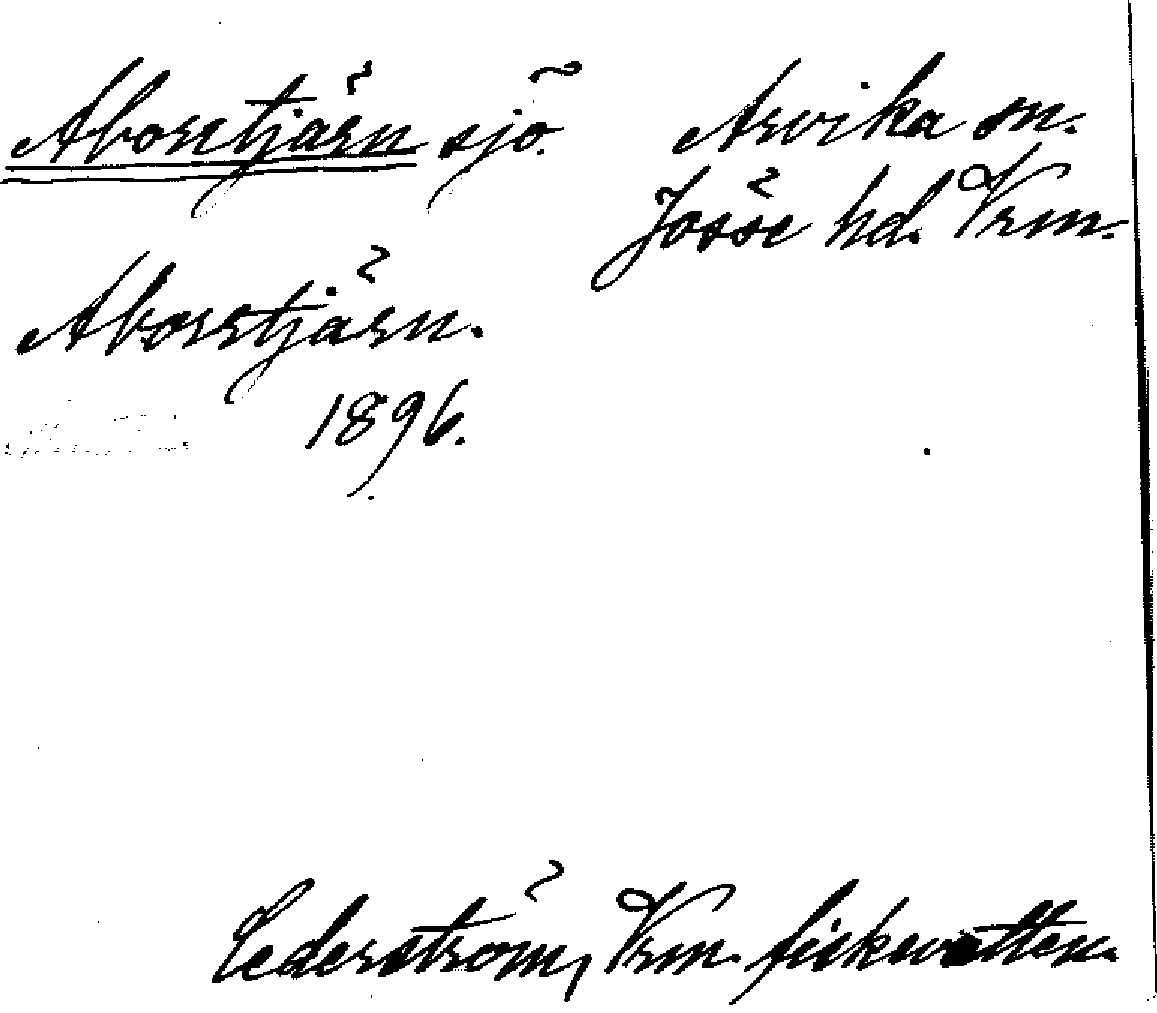 Aborrtjärn sjö. Arvika sn.
Jösse hd. Vrm.
Aborrtjärn.
1896.
Cederström, Vrm. fiskevatten.